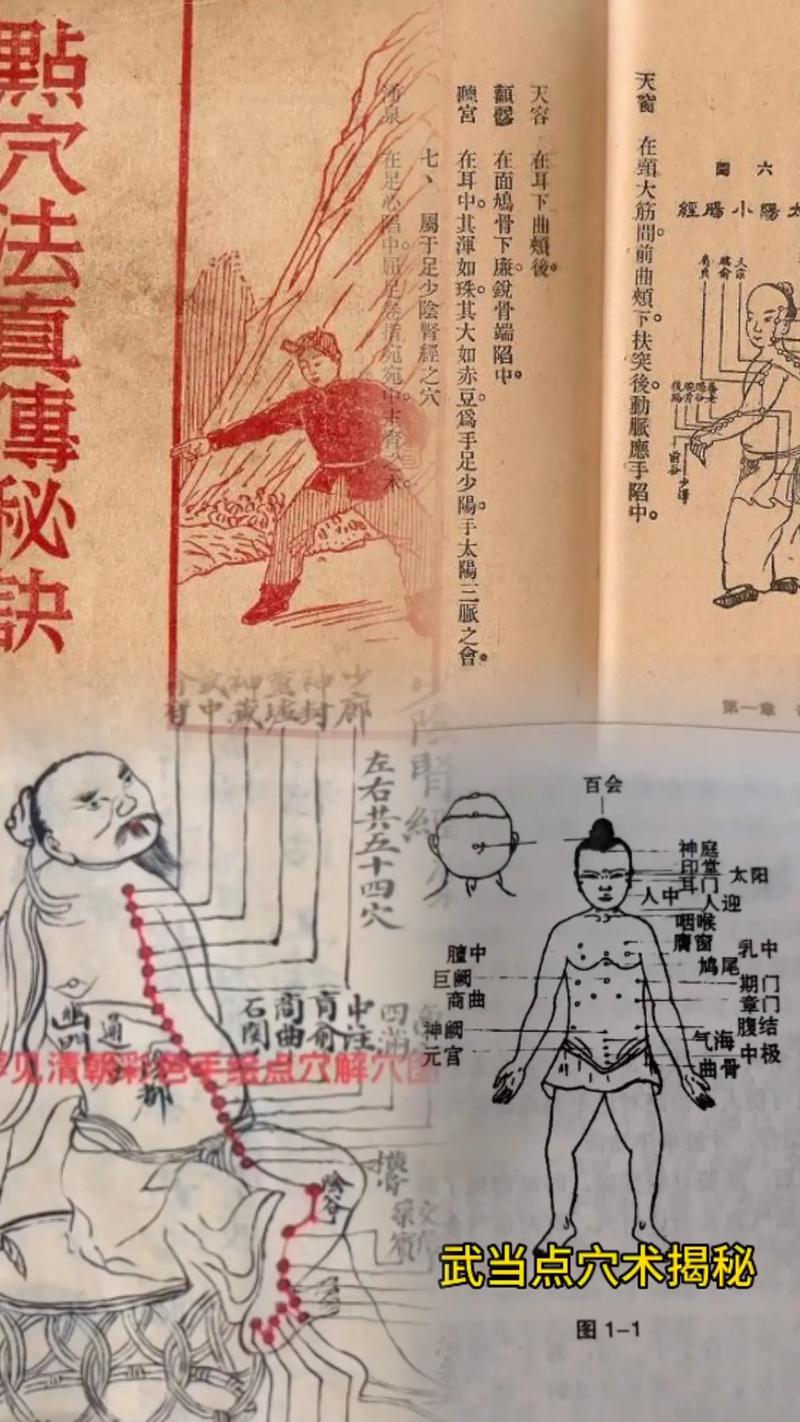 點穴法真傳秘訣
天窗 在頸大筋間前曲頰下。扶突後。動脈應手陷中。
天容 在耳下曲頰後。
顴髎 在面鳩骨下廉銳骨端陷中。
聽宮 在耳中。其渾如珠。其大如赤豆。爲手足少陽。手太陽三脈之會。
七、 屬于足少陰腎經之穴
湧泉 在足心陷中。屈足卷指宛宛中。
六圖
太陽小腸經
天宗
臑俞
肩貞
前谷
少澤
第一章
少陰腎經
左右共五十四穴
步廊
神封
靈墟
神藏
中注
肓俞
商曲
石関
四滿
通
幽門
橫骨
陰谷
交信
築賓
见清朝彩色手绘点穴解穴图
百会
神庭
印堂
耳门
太阳
人中
人迎
咽喉
膺窗
乳中
鸠尾
期门
章门
腹结
气海
中极
曲骨
膻中
巨阙
商曲
神阙
元宫
武当点穴术揭秘
图 1-1